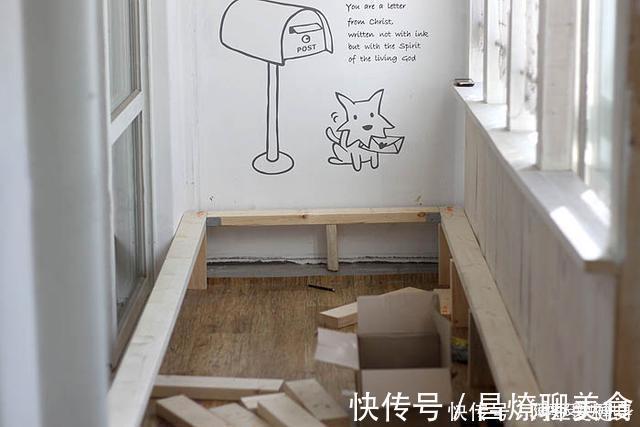 You are a letter
from Christ,
written not with ink
but with the Spirit
of the living God
POST
快传号 / 星燎聊美食
快传号 /